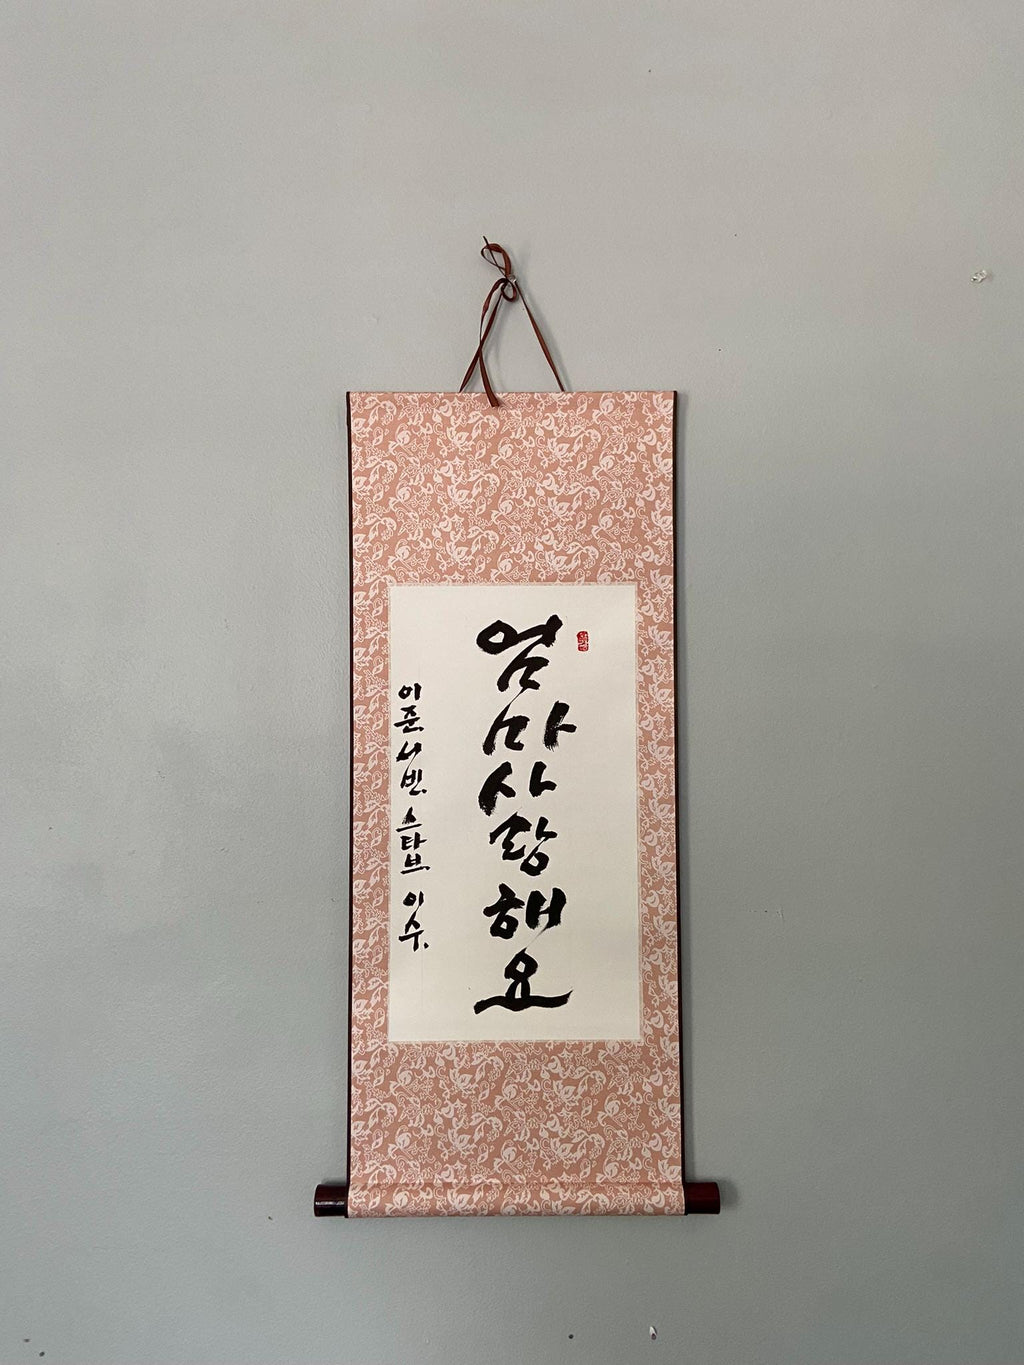 엄마사랑해요
이준, 서빈, 스타브, 이수,